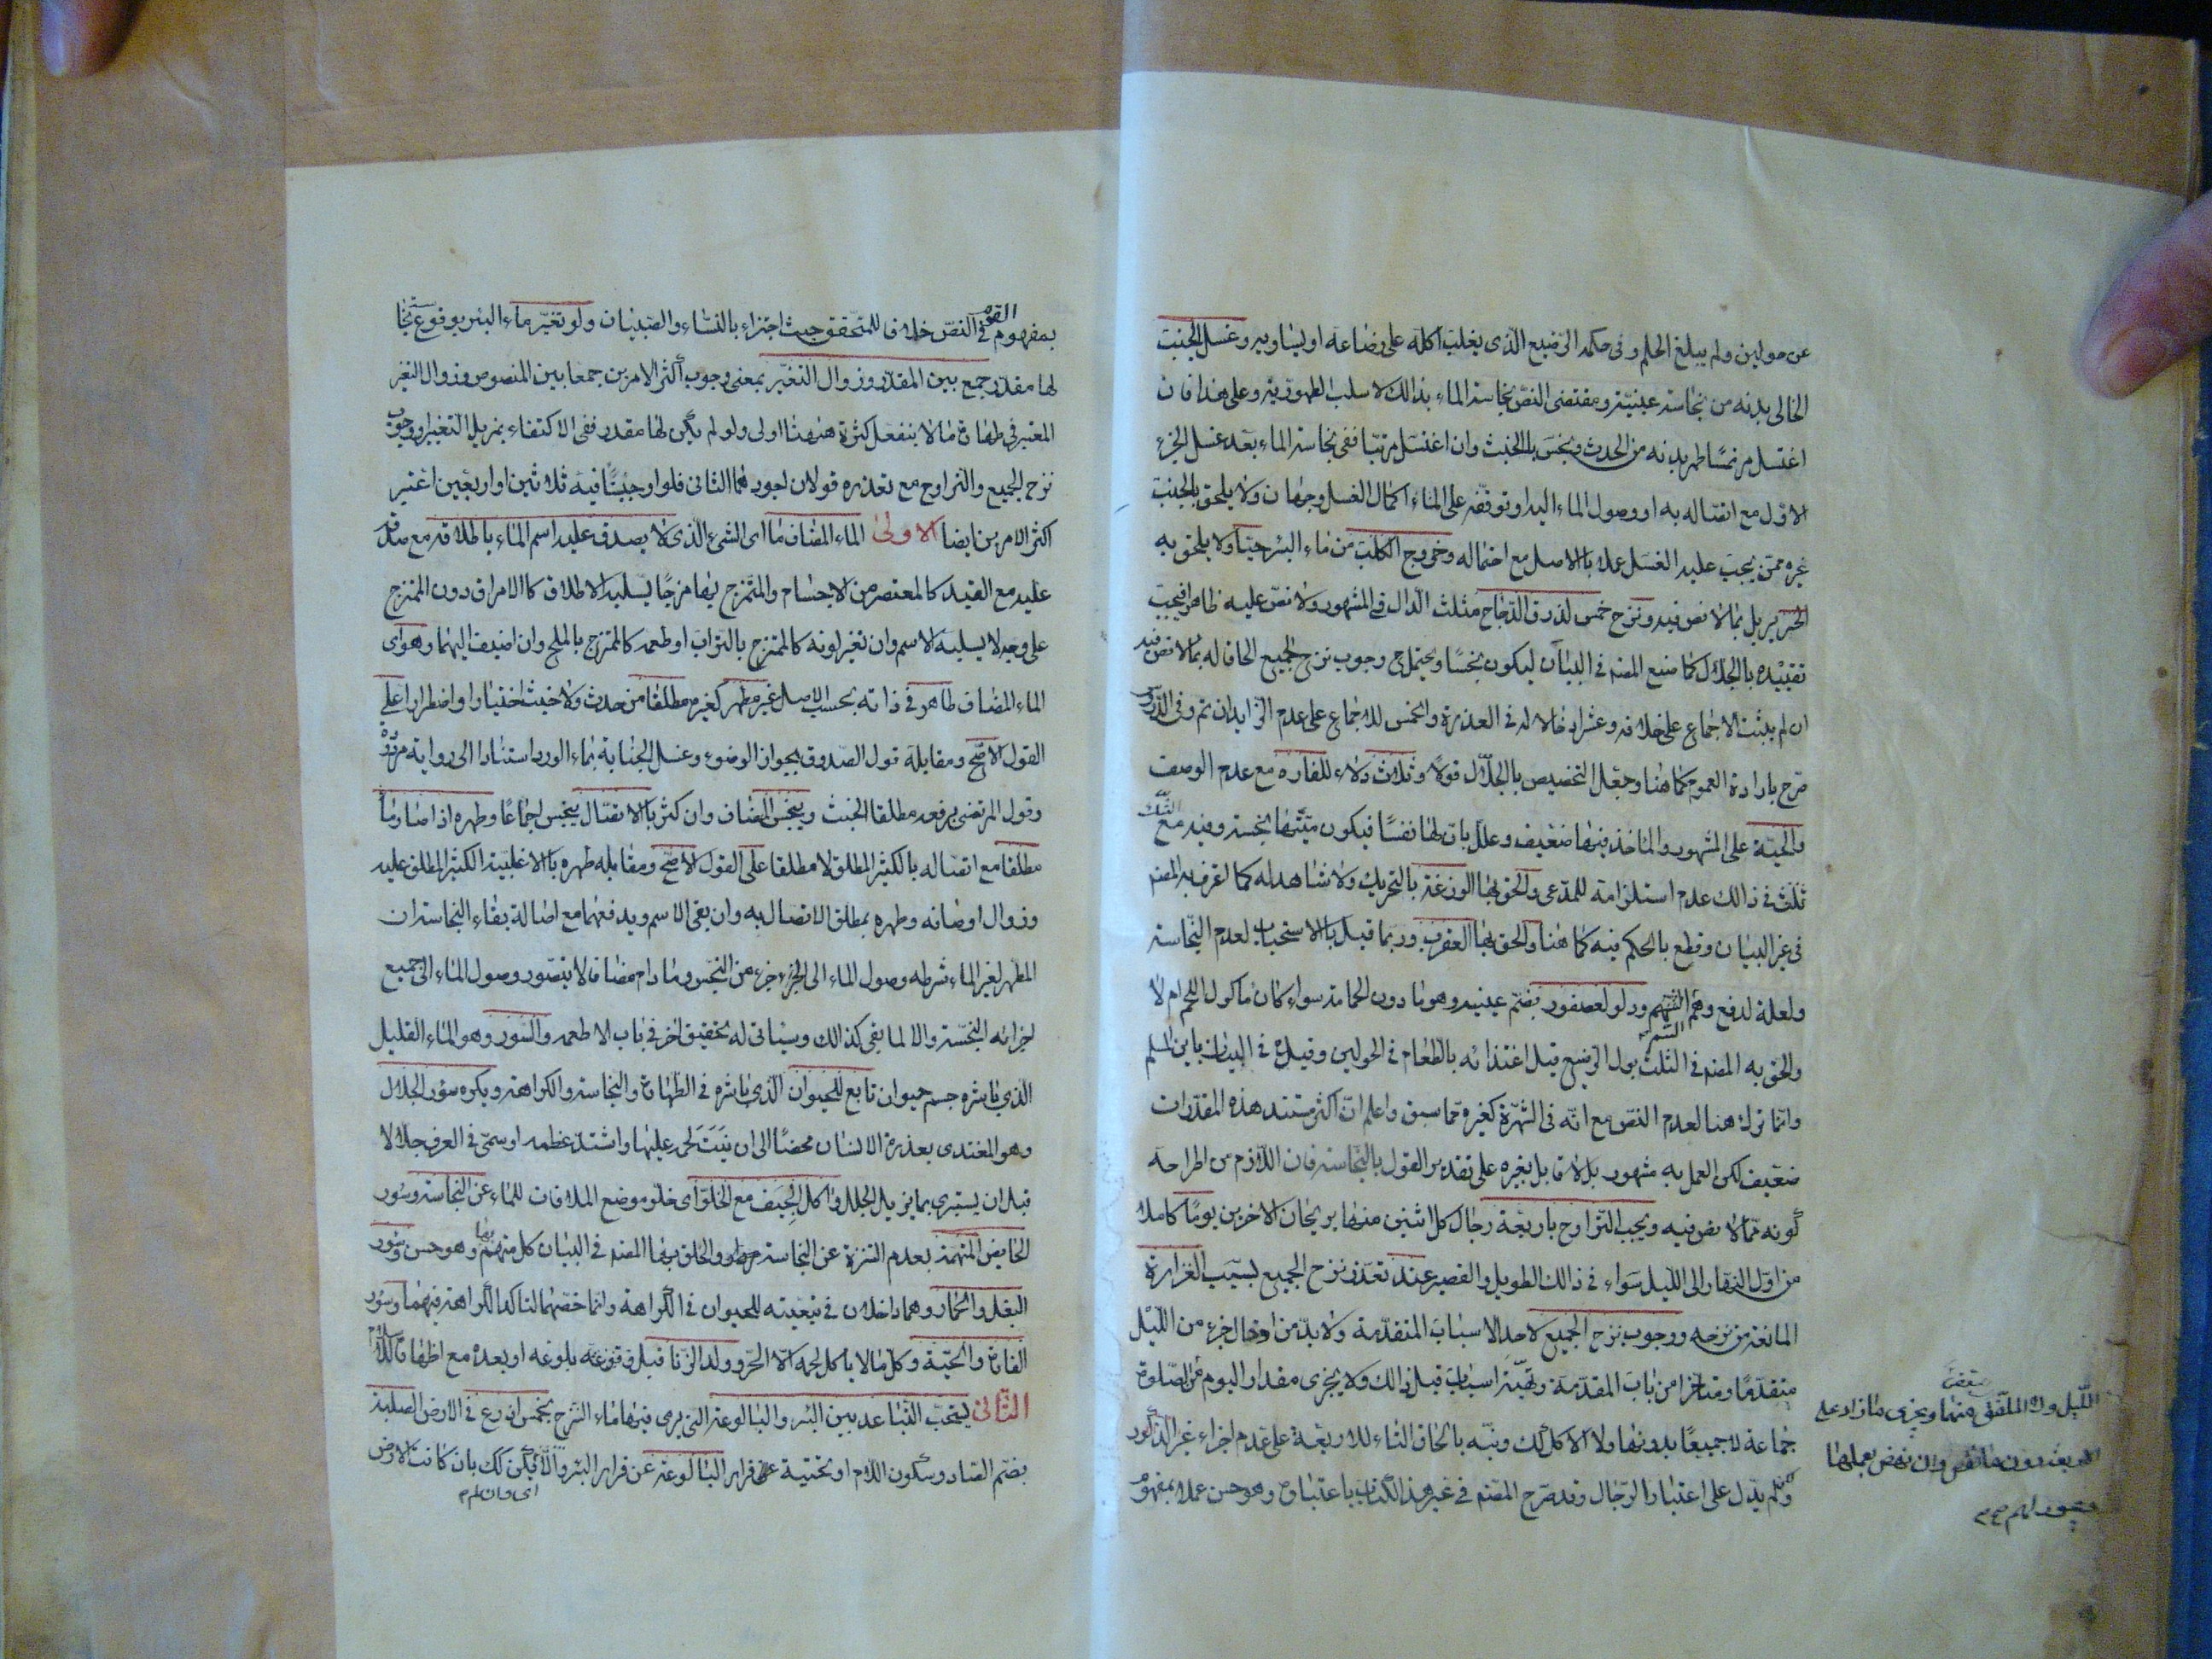 عن حولين ولم يبلغ الحلم وفى حكمه الرضيع الّذى يغلب اكله على رضاعه او يساويه وغسل الجنب
الخالى بدنه من نجاسة عينيّة ومقتضى النصّ نجاسة الماء بذالك لا سلب الطهوريّة وعلى هذا فان
اغتسل مرتمسًا طهر بدنه من الحدث ونجس بالخبث وان اغتسل مرتبّا ففى نجاسة الماء بعد غسل الجزء
الاوّل مع اتصاله به او وصول الماء اليه او توقّفه على اكمال الغسل وجهان ولا يلحق بالجنب
غيره ممّن يجب عليه الغسل عملا بالاصل مع احتماله وخروج الكلب من ماء البئر حيّا ولا يلحق به
الخنزير بل بما لا نص فيه ونزح خمس لذرق الدّجاج مثلث الدّال فى المشهور ولا نصّ عليه ظاهرا فيجب
تقييده بالجلّال كما صنع المصنّف فى البيان ليكون نجسًا ويحتمل ح وجوب نزح الجميع الحاقا له بما لا نص فيه
ان لم يثبت الاجماع على خلافه وعشر ادخالا له فى العذرة والخمس للاجماع على عدم الزّايد ان تم وفى الدّروس
صرّح بارادة العموم كما هنا وجعل التخصيص بالجلّال قولا وثلاث دلاء للفاره مع عدم الوصف
والحيّة على المشهور والماخذ فيها ضعيف وعلل بانّ لها نفسًا فيكون ميّتها نجسة وفيه مع الشّك
فى ذالك عدم استلزامه للمدعى والحق بها الوزغة بالتحريك ولا شاهد له كما اعترف به المصنف
فى غير البيان وقطع بالحكم فيه كما هنا والحق بها العقرب وربما قيل بالاستحباب لعدم النّجاسة
ولعلة لدفع وهم السّم ودلو لعصفور بضمّ عينيه وهو ما دون الحمامة سواء كان ماكول اللحم ام لا
والحق به المصنف فى الثلث بول الرّضيع قبل اغتذائه بالطعام فى الحولين وقيده فى البيان بابن المسلم
وانّما ترك هنا لعدم النصّ مع انّه فى الشّهرة كغيره ممّا سبق واعلم انّ اكثر مستند هذه المقدّرات
ضعيف لكن العمل به مشهور بل لا قايل بغيره على تقدير القول بالنّجاسة فان اللّازم من اطراحه
كونه ممّا لا نص فيه ويجب التّراوح باربعة رجال كل اثنين منها يريحان الاخرين يومًا كاملا
من اوّل النّهار الى اللّيل سواء فى ذالك الطويل والقصير عند تعذّر نزح الجميع بسبب الغزارة
المانعة من نزحه ووجوب نزح الجميع لاحد الاسباب المتقدّمة ولا بدّ من ادخال جزء من اللّيل
متقدّمًا ومتاخرا من باب المقدّمة وتهيّة اسباب قبل ذالك ولا يجزى مقدار اليوم من
اللّيل ولا الملفّق منهما ويجزى ما زاد على
الاربعة دون ما نقص وان نهض بعملها
ويجوز لهم
الصّلوة
جماعة لا جميعًا بدونها ولا الاكل كك ونبّه بالحاق التاء للاربعة على عدم اجزاء غير الذكور
ولم يدّل على اعتبار الرّجال وقد صرّح المصنف فى غير هذا الكتاب باعتباره وهو حسن عملا بمفهوم
بمفهوم القوم فى النصّ خلاف للمتحقق حيث اجتزاء بالنّساء والصّبيان ولو تغيّر ماء البئر بوقوع نجاسة
لها مقدّر جمع بين المقدّر وزوال التغيّر بمعنى وجوب أكثر الامرين جمعا بين المنصوص وزوال التغير
المعتبر فى طهارة ما لا ينفعل كثرة هنا اولى ولو لم يكن لها مقدر ففى الاكتفاء بمزيل التغير او وجوب
نزح الجميع والتراوح مع تعذره قولان اجودهما الثانى فلو اوجبنا فيه ثلاثين او اربعين اعتبر
اكثر الامرين ايضا الاولى الماء المضاف ما اى الشىء الّذى لا يصدق عليه اسم الماء باطلاقه مع صدقه
عليه مع القيد كالمعتصر من الاجسام والممتزج بها مزجًا يسلبه الاطلاق كالامراق دون الممتزج
على وجه لا يسلبه الاسم وان تغير لونه كالممتزج بالتراب او طعمه كالممتزج بالملح وان اضيف اليهما وهو اى
الماء المضاف طاهر فى ذاته بحسب الاصل غير مطهر لغيره مطلقا من حدث ولا خبث اختيارا واضطرارا على
القول الاصّح ومقابلة قول الصّدوق بجواز الوضوء وغسل الجنابة بماء الورد استنادا الى رواية مردودة
وقول المرتضى برفعه مطلقا الخبث وينجس المضاف وان كثر بالاتصال بنجس اجماعًا وطهره اذا صار ماءً
مطلقا مع اتصاله بالكثير المطلق لا مطلقا على القول الاصّح ومقابله طهره بالاغلبية الكثير المطلق عليه
وزوال اوصافه وطهره بمطلق الاتصال به وان بقى الاسم ويدفعهما مع اصالة بقاء النجاسة ان
المطهر لغير الماء شرطه وصول الماء الى كل جزء من النجس وما دام مضافا لا يتصّور وصول الماء الى جميع
اجزائه النجّسة والا لما بقى كذالك وسياتى له تحقيق اخر فى باب الاطعمه والسؤر وهو الماء القليل
الّذى باشره جسم حيوان تابع للحيوان الّذى باشره فى الطّهارة والنجاسة والكراهة ويكره سؤر الجلّال
وهو المغتذى بعذرة الانسان محضًا الى ان ينبت لحمه عليها واشتدّ عظمه او سمّى فى العرف جلالا
قبل ان يستبرى بما يزيل الجلل واكل الجيف مع الخلوّ اى خلّو موضع الملاقات للماء عن النجاسة وسؤر
الحايض المتهمة بعدم التنزّه عن النجاسة والحق بها المصنف فى البيان كل متهم بها وهو حسن وسؤر
البغل والحمار وهما داخلان فى تبعيته للحيوان فى الكراهة وانما خصّهما لتاكد الكراهة فيهما وسؤر
الفارة والحيّة وكلّ ما لا ياكل لحمه الّا الهرّ وولد الزّنا قبل بلوغه او بعده مع اظهاره للاسلام
الثّانى يستحبّ التّباعد بين البئر والبالوعة التى يرمى فيها ماء النّزح بخمس اذرع فى الارض الصلبة
بضمّ الصّاد وسكون اللام او تحتية قرار البالوعة عن قرار البئر والّا يكن كك بان كانت الارض
اى وان لم